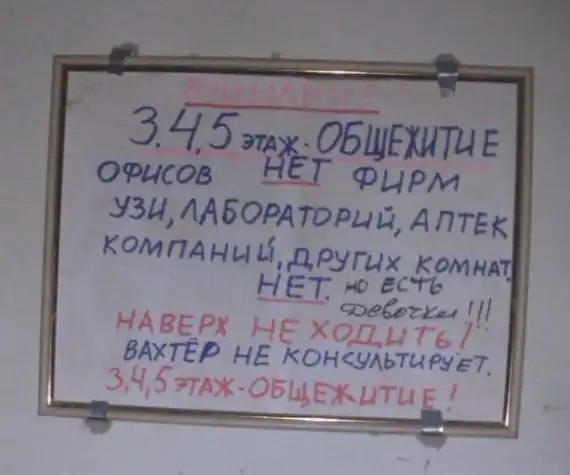 ВНИМАНИЕ!
3.4.5 ЭТАЖ-ОБЩЕЖИТИЕ
ОФИСОВ НЕТ ФИРМ
УЗИ, ЛАБОРАТОРИЙ, АПТЕК
КОМПАНИЙ, ДРУГИХ КОМНАТ
НЕТ. но ЕСТЬ
девочки!!!
НАВЕРХ НЕ ХОДИТЬ!
ВАХТЁР НЕ КОНСУЛЬТИРУЕТ.
3,4,5 ЭТАЖ-ОБЩЕЖИТИЕ!